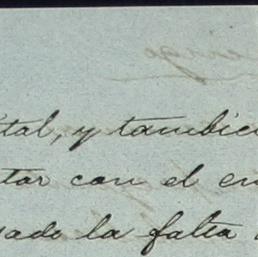 tal, y tambié
tar con el en
sado la falta